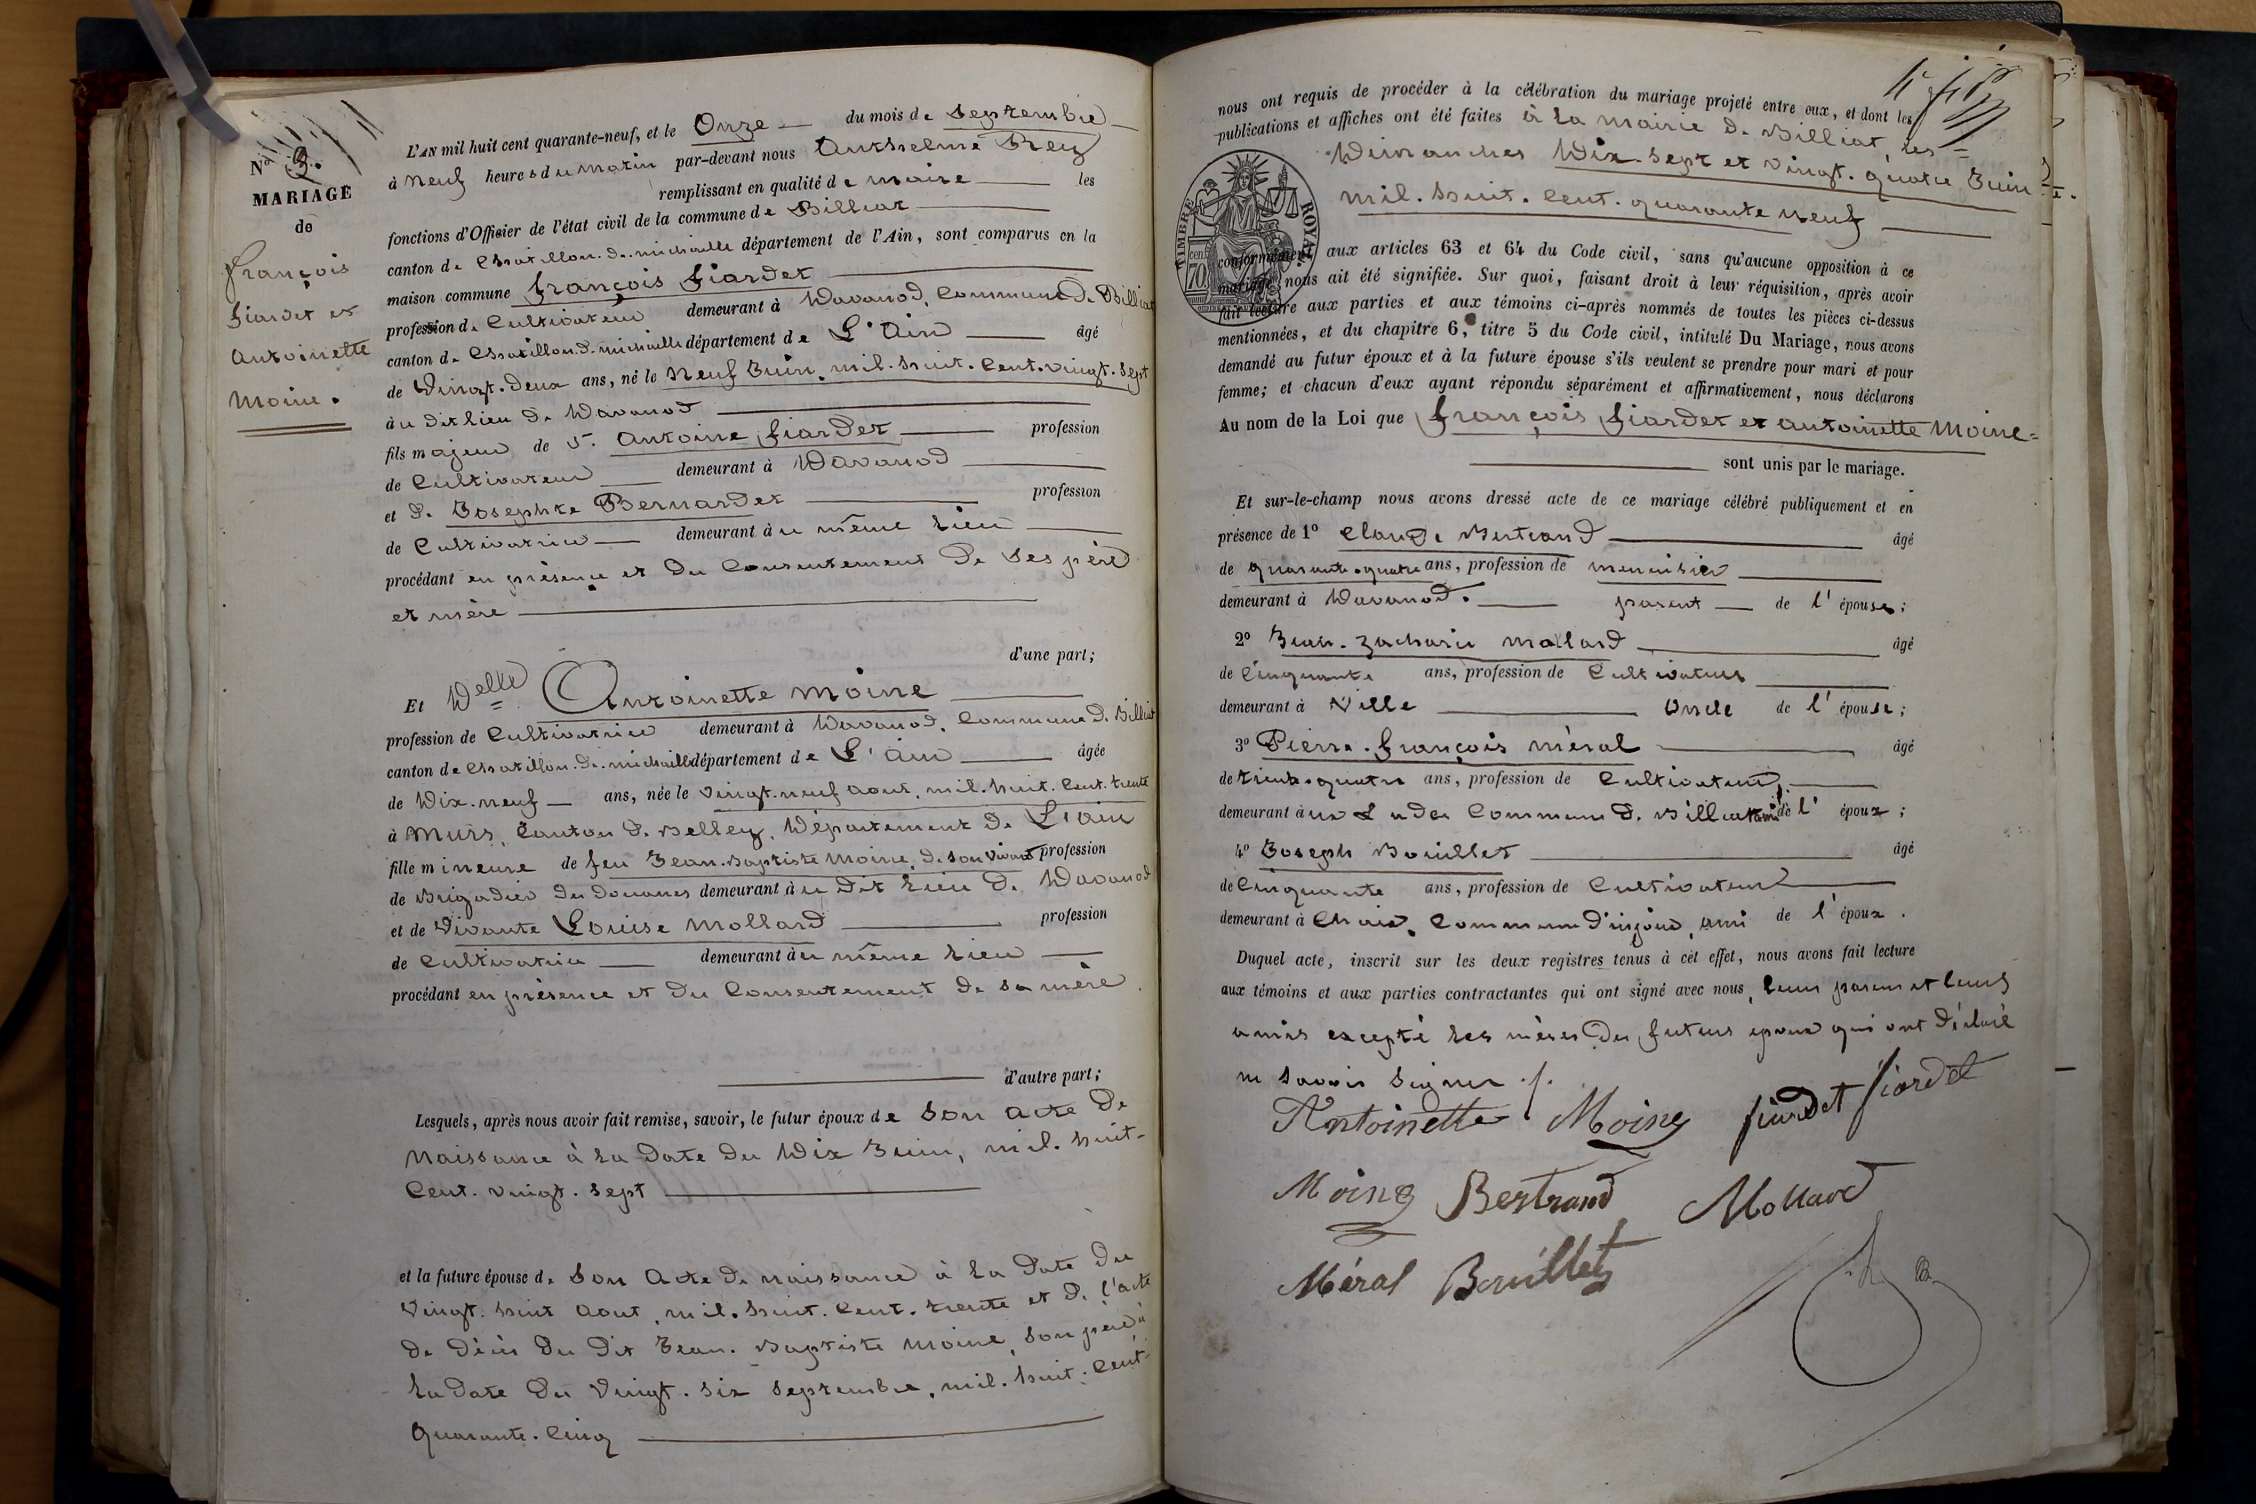 N° 9.
MARIAGE
de
françois
fiardet et
antoinette
moine.
L'AN mil huit cent quarante-neuf, et le Onze du mois de Septembre
à neuf heures du matin par-devant nous Anthelme Rey
remplissant en qualité de maire les
fonctions d'Officier de l'état civil de la commune de Billiat
canton de Chatillon. de. michaille département de l'Ain, sont comparus en la
maison commune françois fiardet
profession de Cultivateur demeurant à Davanod, Commune de Billiat
canton de Chatillon. de. michaille département de L'Ain âgé
de Vingt. deux ans, né le neuf Juin, mil. huit. Cent. vingt. sept
à u dit lieu de Davanod
fils majeur de S. Antoine fiardet profession
de Cultivateur demeurant à Davanod
et de Josephte Bernardet profession
de Cultivatrice demeurant à u même lieu
procédant en présence et du Consentement de ses père
et mère
d'une part;
Et Delle Antoinette moine
profession de Cultivatrice demeurant à Davanod, Commune de Billiat
canton de Chatillon. de. michaille département de L'ain âgée
de Dix. neuf ans, née le vingt. neuf aout, mil. huit. Cent. trente
à Murs, Canton de Belley, Département de L'ain
fille mineure de feu Jean. Baptiste Moine, de son vivant profession
de Brigadier des Douanes demeurant à u dit lieu de Davanod
et de Vivante Louise Mollard profession
de Cultivatrice demeurant à u même lieu
procédant en présence et du Consentement de sa mère.
d'autre part;
Lesquels, après nous avoir fait remise, savoir, le futur époux de son acte de
Naissance à la date du Dix Juin, mil. huit-
Cent. vingt. sept
et la future épouse de son acte de naissance à la date du
Vingt. huit aout, mil. huit. Cent. trente et de l'acte
de décès du dit Jean. Baptiste moine, son père à
la date du Vingt. six septembre, mil. huit. Cent-
quarante. Cinq
nous ont requis de procéder à la célébration du mariage projeté entre eux, et dont les
publications et affiches ont été faites à la mairie de Billiat, les
Dimanches Dix. sept et vingt. quatre Juin
mil. huit. Cent. quarante neuf
TIMBRE ROYAL
70
conformément aux articles 63 et 64 du Code civil, sans qu'aucune opposition à ce
mariage nous ait été signifiée. Sur quoi, faisant droit à leur réquisition, après avoir
fait lecture aux parties et aux témoins ci-après nommés de toutes les pièces ci-dessus
mentionnées, et du chapitre 6, titre 5 du Code civil, intitulé Du Mariage, nous avons
demandé au futur époux et à la future épouse s'ils veulent se prendre pour mari et pour
femme; et chacun d'eux ayant répondu séparément et affirmativement, nous déclarons
Au nom de la Loi que françois fiardet et antoinette Moine
sont unis par le mariage.
Et sur-le-champ nous avons dressé acte de ce mariage célébré publiquement et en
présence de 1° Claude Bertrand âgé
de quarante. quatre ans, profession de menuisier
demeurant à Davanod. parent de l'épouse;
2° Jean. Zacharie Molard âgé
de Cinquante ans, profession de Cultivateur
demeurant à Ville Oncle de l'épouse;
3° Pierre. françois méral âgé
de trente. quatre ans, profession de Cultivateur
demeurant à Commune de Billiat ami de l'époux;
4° Joseph Bouillet âgé
de Cinquante ans, profession de Cultivateur
demeurant à Commune d'injoux, ami de l'époux.
Duquel acte, inscrit sur les deux registres tenus à cet effet, nous avons fait lecture
aux témoins et aux parties contractantes qui ont signé avec nous, leurs parens et leurs
amis excepté les mères des futurs epoux qui ont déclaré
ne savoir signer ./.
Antoinette Moine fiardet fiardet
Moine Bertrand Mollard
Méral Bouillet